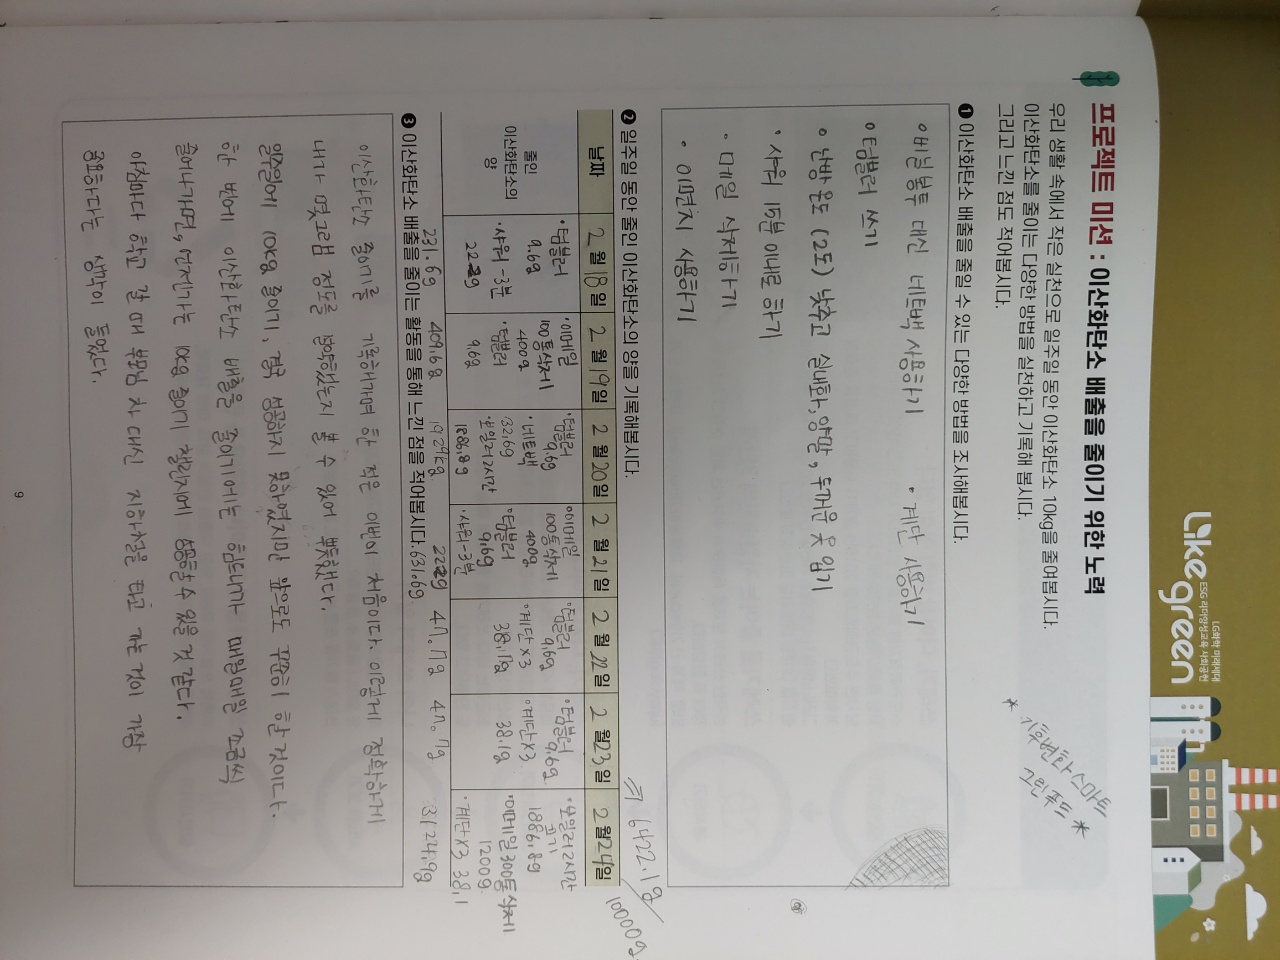 LG화학 미래세대
ESG 리더양성교육 사회공헌
Like green
프로젝트 미션 : 이산화탄소 배출을 줄이기 위한 노력
우리 생활 속에서 작은 실천으로 일주일 동안 이산화탄소 10kg을 줄여봅시다.
이산화탄소를 줄이는 다양한 방법을 실천하고 기록해 봅시다.
그리고 느낀 점도 적어봅시다.
❶ 이산화탄소 배출을 줄일 수 있는 다양한 방법을 조사해봅시다.
비닐봉투 대신 네트백 사용하기
• 계단 사용하기
텀블러 쓰기
• 난방 온도 (2도) 낮추고 실내화, 양말, 두꺼운 옷 입기
• 샤워 15분 이내로 하기
• 메일 삭제하기
• 이면지 사용하기
❷ 일주일 동안 줄인 이산화탄소의 양을 기록해봅시다.
⇒ 6422.1g / 10000g
날짜 2월 18일 2월 19일 2월 20일 2월 21일 2월 22일 2월 23일 2월 24일
줄인 이산화탄소의 양
• 텀블러 9.6g
• 샤워 -3분 222g
• 이메일 100통 삭제 400g
• 텀블러 9.6g
• 텀블러 9.6g
• 네트백 32.6g
보일러 2시간 1886.8g
• 이메일 100통 삭제 400g
• 텀블러 9.6g
• 샤워 -3분 222g
• 텀블러 9.6g
• 계단 X3 38.1g
• 텀블러 9.6g
• 계단 X3 38.1g
• 보일러 2시간 끄기 1886.8g
• 이메일 300통 삭제 1200g
• 계단 X3 38.1
231.6g 409.6g 631.6g 47.7g 47.7g 3124.9g
❸ 이산화탄소 배출을 줄이는 활동을 통해 느낀 점을 적어봅시다.
이산화탄소 줄이기를 기록해가며 한 적은 이번이 처음이다. 이렇게 정확하게
내가 몇그램 정도를 절약했는지 볼 수 있어 뿌듯했다.
일주일에 10kg 줄이기, 결국 성공하지 못하였지만 앞으로도 꾸준히 할 것이다.
한 번에 이산화탄소 배출을 줄이기에는 힘드니까 매일매일 조금씩
줄여나가면, 언젠가는 10kg 줄이기 챌린지에 성공할 수 있을 것 같다.
아침마다 학교 갈 때 부모님 차 대신 지하철을 타고 가는 것이 가장
중요하다는 생각이 들었다.
9